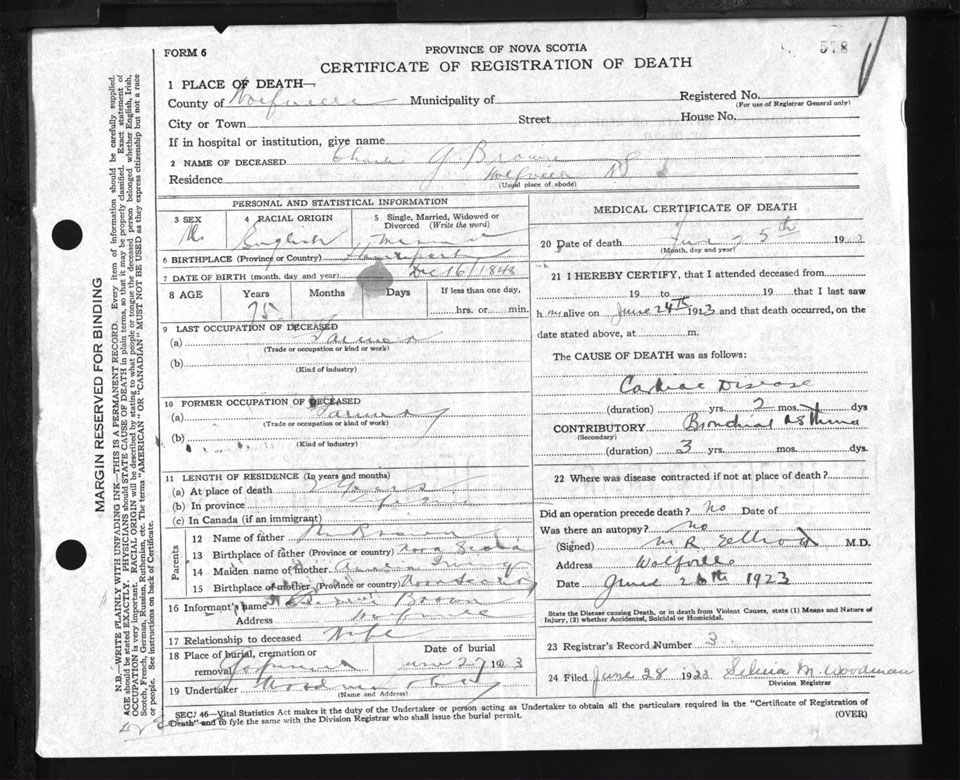 578
FORM 6
PROVINCE OF NOVA SCOTIA
CERTIFICATE OF REGISTRATION OF DEATH
1 PLACE OF DEATH—
County of Municipality of Registered No.
(For use of Registrar General only)
City or Town Street House No.
If in hospital or institution, give name
2 NAME OF DECEASED Brown
Residence Wolfville NS
(Usual place of abode)
PERSONAL AND STATISTICAL INFORMATION
3 SEX 4 RACIAL ORIGIN 5 Single, Married, Widowed or Divorced (Write the word)
English
6 BIRTHPLACE (Province or Country)
7 DATE OF BIRTH (month, day and year) Dec 16/1848
8 AGE Years Months Days If less than one day,
75 hrs. or min.
9 LAST OCCUPATION OF DECEASED
(a) Farmer
(Trade or occupation or kind or work)
(b)
(Kind of industry)
10 FORMER OCCUPATION OF DECEASED
(a) Farmer
(Trade or occupation or kind or work)
(b)
(Kind of industry)
11 LENGTH OF RESIDENCE (In years and months)
(a) At place of death Years
(b) In province
(c) In Canada (if an immigrant)
Parents
12 Name of father Brown
13 Birthplace of father (Province or country) Nova Scotia
14 Maiden name of mother
15 Birthplace of mother (Province or country) Nova Scotia
16 Informant's name Brown
Address Wolfville
17 Relationship to deceased Wife
18 Place of burial, cremation or removal Date of burial
June 27 1923
19 Undertaker Woodman
(Name and Address)
MEDICAL CERTIFICATE OF DEATH
20 Date of death 19
(Month, day and year)
21 I HEREBY CERTIFY, that I attended deceased from
19 to 19 that I last saw
h alive on June 24th 1923 and that death occurred, on the
date stated above, at m.
The CAUSE OF DEATH was as follows:
Cardiac Disease
(duration) yrs. 2 mos. dys
CONTRIBUTORY Bronchial Asthma
(Secondary)
(duration) 3 yrs. mos. dys.
22 Where was disease contracted if not at place of death?
Did an operation precede death? No Date of
Was there an autopsy? No
(Signed) M R Elliot M.D.
Address Wolfville
Date June 26th 1923
State the Disease causing Death, or in death from Violent Causes, state (1) Means and Nature of
Injury, (2) whether Accidental, Suicidal or Homicidal.
23 Registrar's Record Number 3
24 Filed June 28 1923 Selina M. Woodman
Division Registrar
SEC. 46—Vital Statistics Act makes it the duty of the Undertaker or person acting as Undertaker to obtain all the particulars required in the "Certificate of Registration of
Death" and to fyle the same with the Division Registrar who shall issue the burial permit.
(OVER)
MARGIN RESERVED FOR BINDING
N.B.—WRITE PLAINLY WITH UNFADING INK—THIS IS A PERMANENT RECORD. Every item of information should be carefully supplied.
AGE should be stated EXACTLY. PHYSICIANS should STATE CAUSE OF DEATH in plain terms, so that it may be properly classified. Exact statement of
OCCUPATION is very important. RACIAL ORIGIN will be described by stating to what people or tongue the deceased person belonged whether English, Irish,
Scotch, French, German, Russian, Ruthenian, etc. The terms "AMERICAN" OR "CANADIAN" MUST NOT BE USED as they express citizenship but not a race
or people. See instructions on back of Certificate.